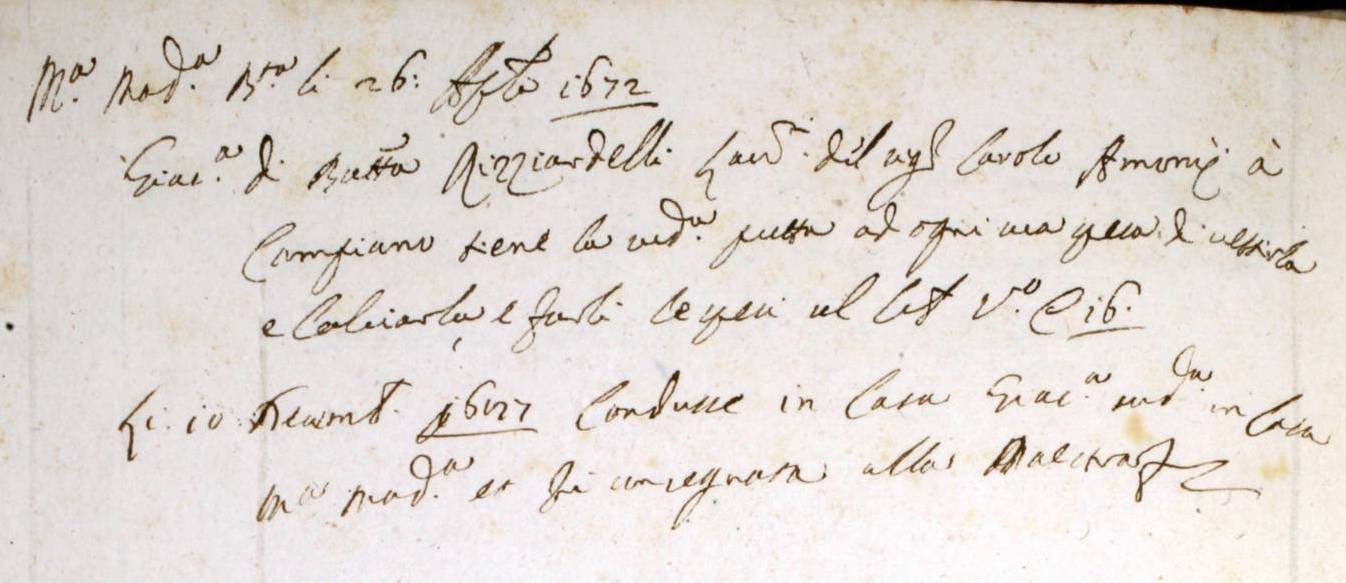 M.a Mad.a B.ta li 26: Agsto 1672
Giac.a di Batta Rizziardelli dil sigr Carolo à
Campiano tiene la sud.a putta ad ogni sua spesa di vestirla
e Calciarla e farli le spese al lib V.o C 16.
Li. 10 1677 Condusse in Casa Giac.a sud.a in Casa
M.a Mad.a et fu consegnata alla Maestra